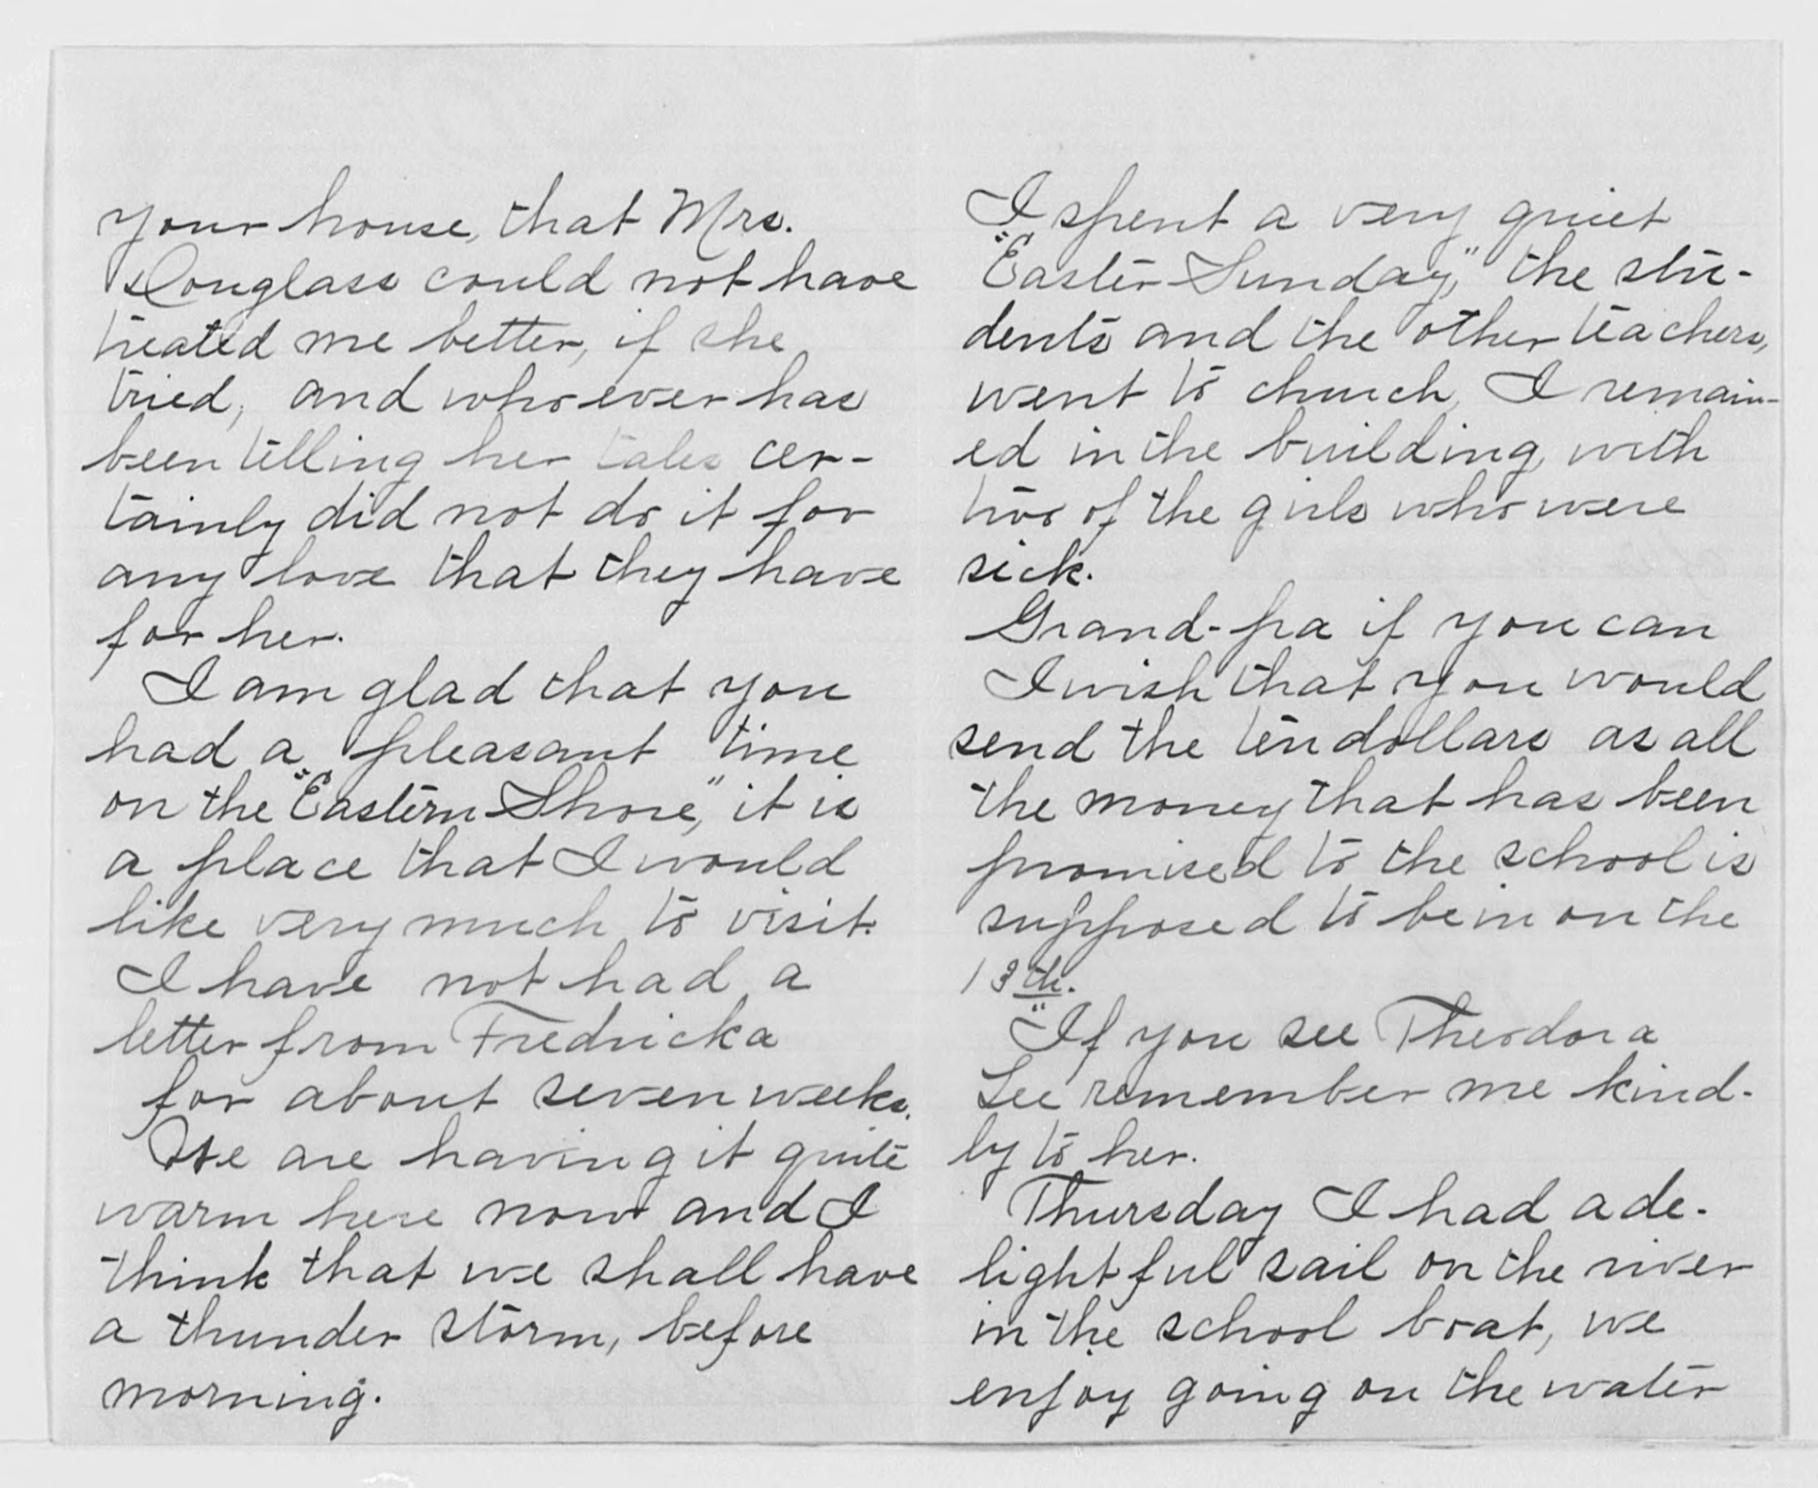 your house, that Mrs.
Douglass could not have
treated me better, if she
tried, and whoever has
been telling her tales cer-
tainly did not do it for
any love that they have
for her.
I am glad that you
had a pleasant time
on the "Eastern Shore," it is
a place that I would
like very much to visit.
I have not had a
letter from Fredricka
for about seven weeks.
We are having it quite
warm here now and I
think that we shall have
a thunder storm, before
morning.
I spent a very quiet
"Easter Sunday," the stu-
dents and the other teachers,
went to church, I remain-
ed in the building with
two of the girls who were
sick.
Grand-pa if you can
I wish that you would
send the ten dollars as all
the money that has been
promised to the school is
supposed to be in on the
13th.
"If you see Theodora
Lee remember me kind-
ly to her.
Thursday I had a de-
lightful sail on the river
in the school boat, we
enjoy going on the water